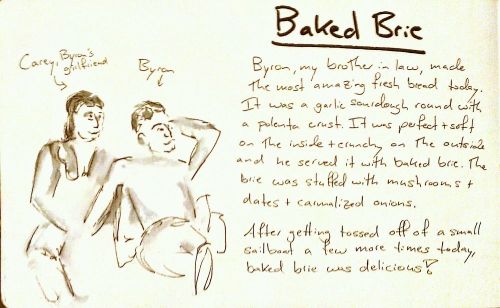 Baked Brie
Carey, Byron's
girlfriend
Byron
Byron, my brother in law, made
the most amazing fresh bread today.
It was a garlic sourdough round with
a polenta crust. It was perfect + soft
on the inside + crunchy on the outside
and he served it with baked brie. The
brie was stuffed with mushrooms +
dates + carmalized onions.
After getting tossed off of a small
sailboat a few more times today,
baked brie was delicious!